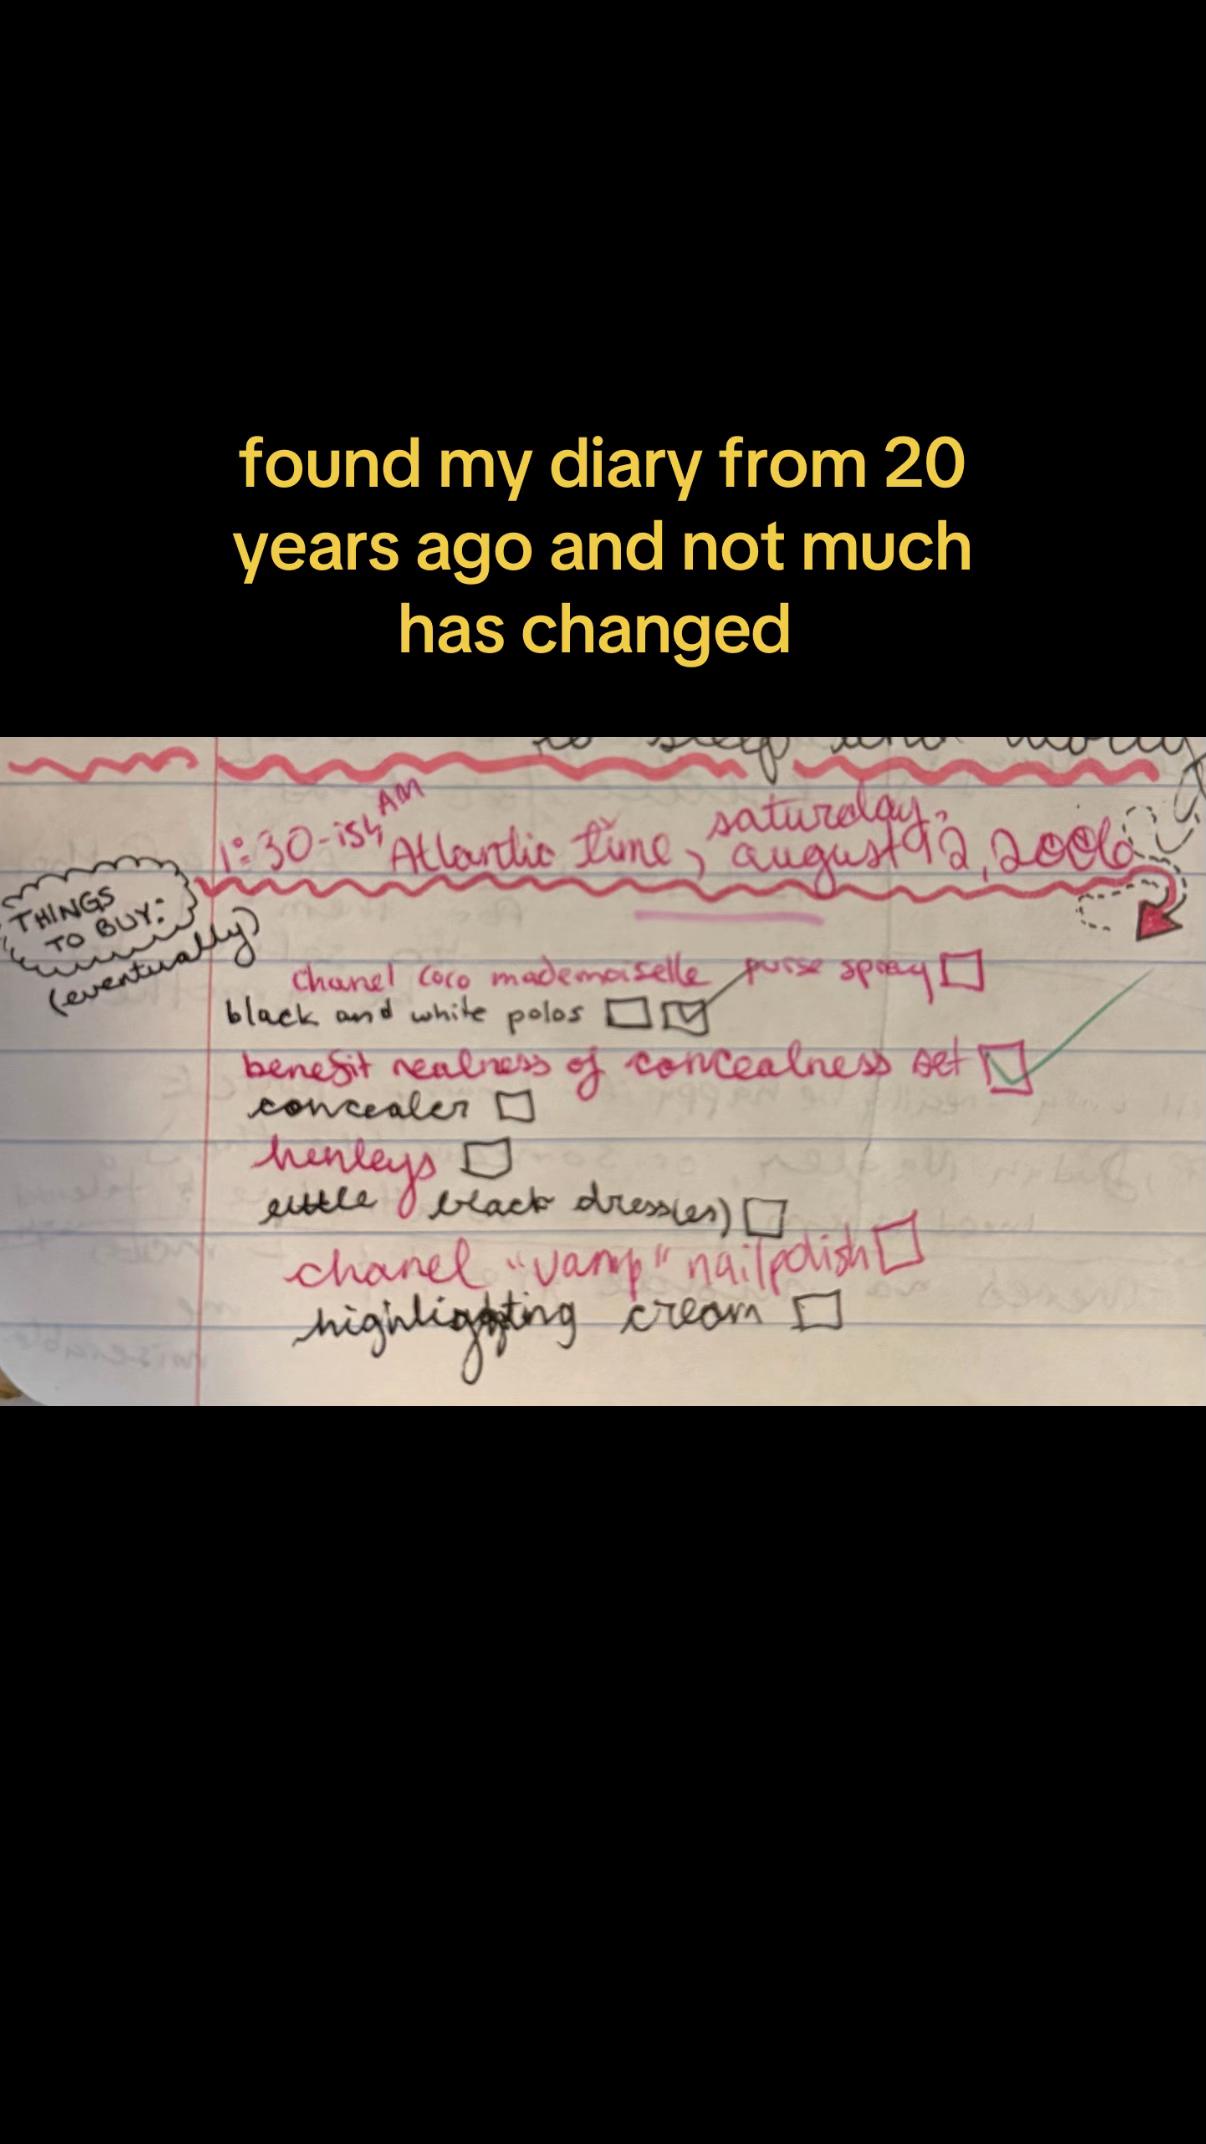 found my diary from 20
years ago and not much
has changed
to sleep and
1:30-ish AM Atlantic time, saturday, august 12, 2006
THINGS
TO BUY:
(eventually)
chanel coco mademoiselle purse spray
black and white polos
benefit realness of concealness set
concealer
henleys
little black dress(es)
chanel "vamp" nailpolish
highlighting cream